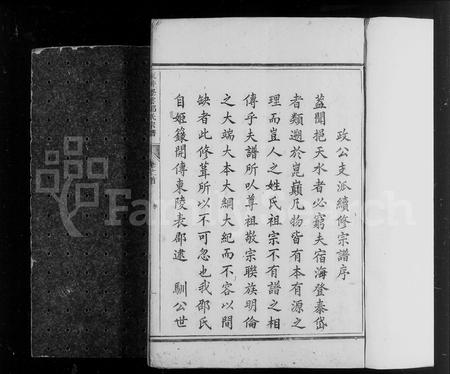 政公支派續修宗譜序
蓋聞挹天水者必窮夫宿海登泰岱
者類遡於崑巔凡物皆有本有源之
理而豈人之姓氏祖宗不有譜之相
傳乎夫譜所以尊祖敬宗聯族明倫
之大端大本大綱大紀而不容以間
缺者此修葺所以不可忽也我邵氏
自姬籙開傳東陵表郡逮 馴公世
FamilySearch